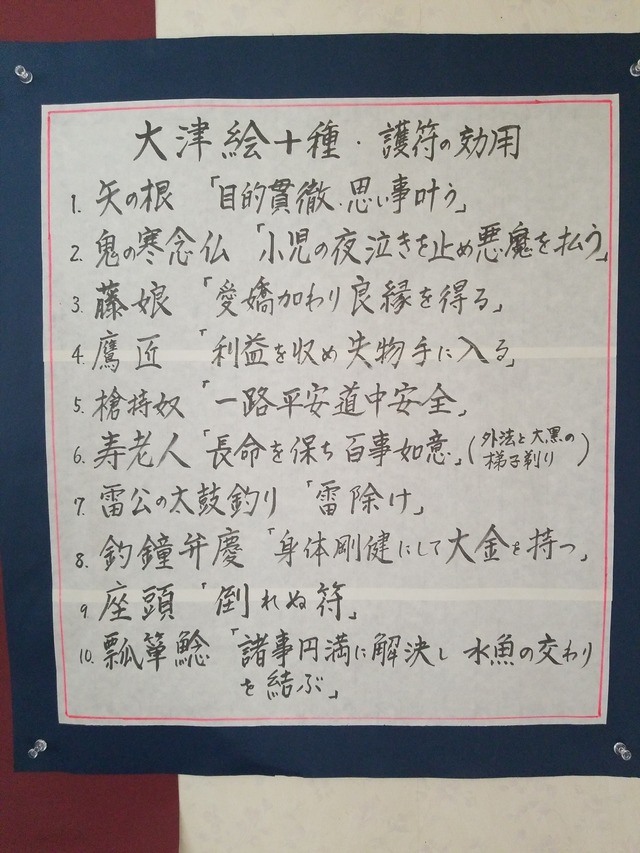 大津絵十種・護符の効用
1. 矢の根 「目的貫徹.思い事叶う」
2. 鬼の寒念仏 「小児の夜泣きを止め悪魔を払う」
3. 藤娘 「愛嬌加わり良縁を得る」
4. 鷹匠 「利益を収め失物手に入る」
5. 槍持奴 「一路平安道中安全」
6. 寿老人 「長命を保ち百事如意」(外法と大黒の
梯子剃り)
7. 雷公の太鼓釣り 「雷除け」
8. 釣鐘弁慶 「身体剛健にして大金を持つ」
9 座頭 「倒れぬ符」
10. 瓢箪鯰 「諸事円満に解決し 水魚の交わり
を結ぶ」